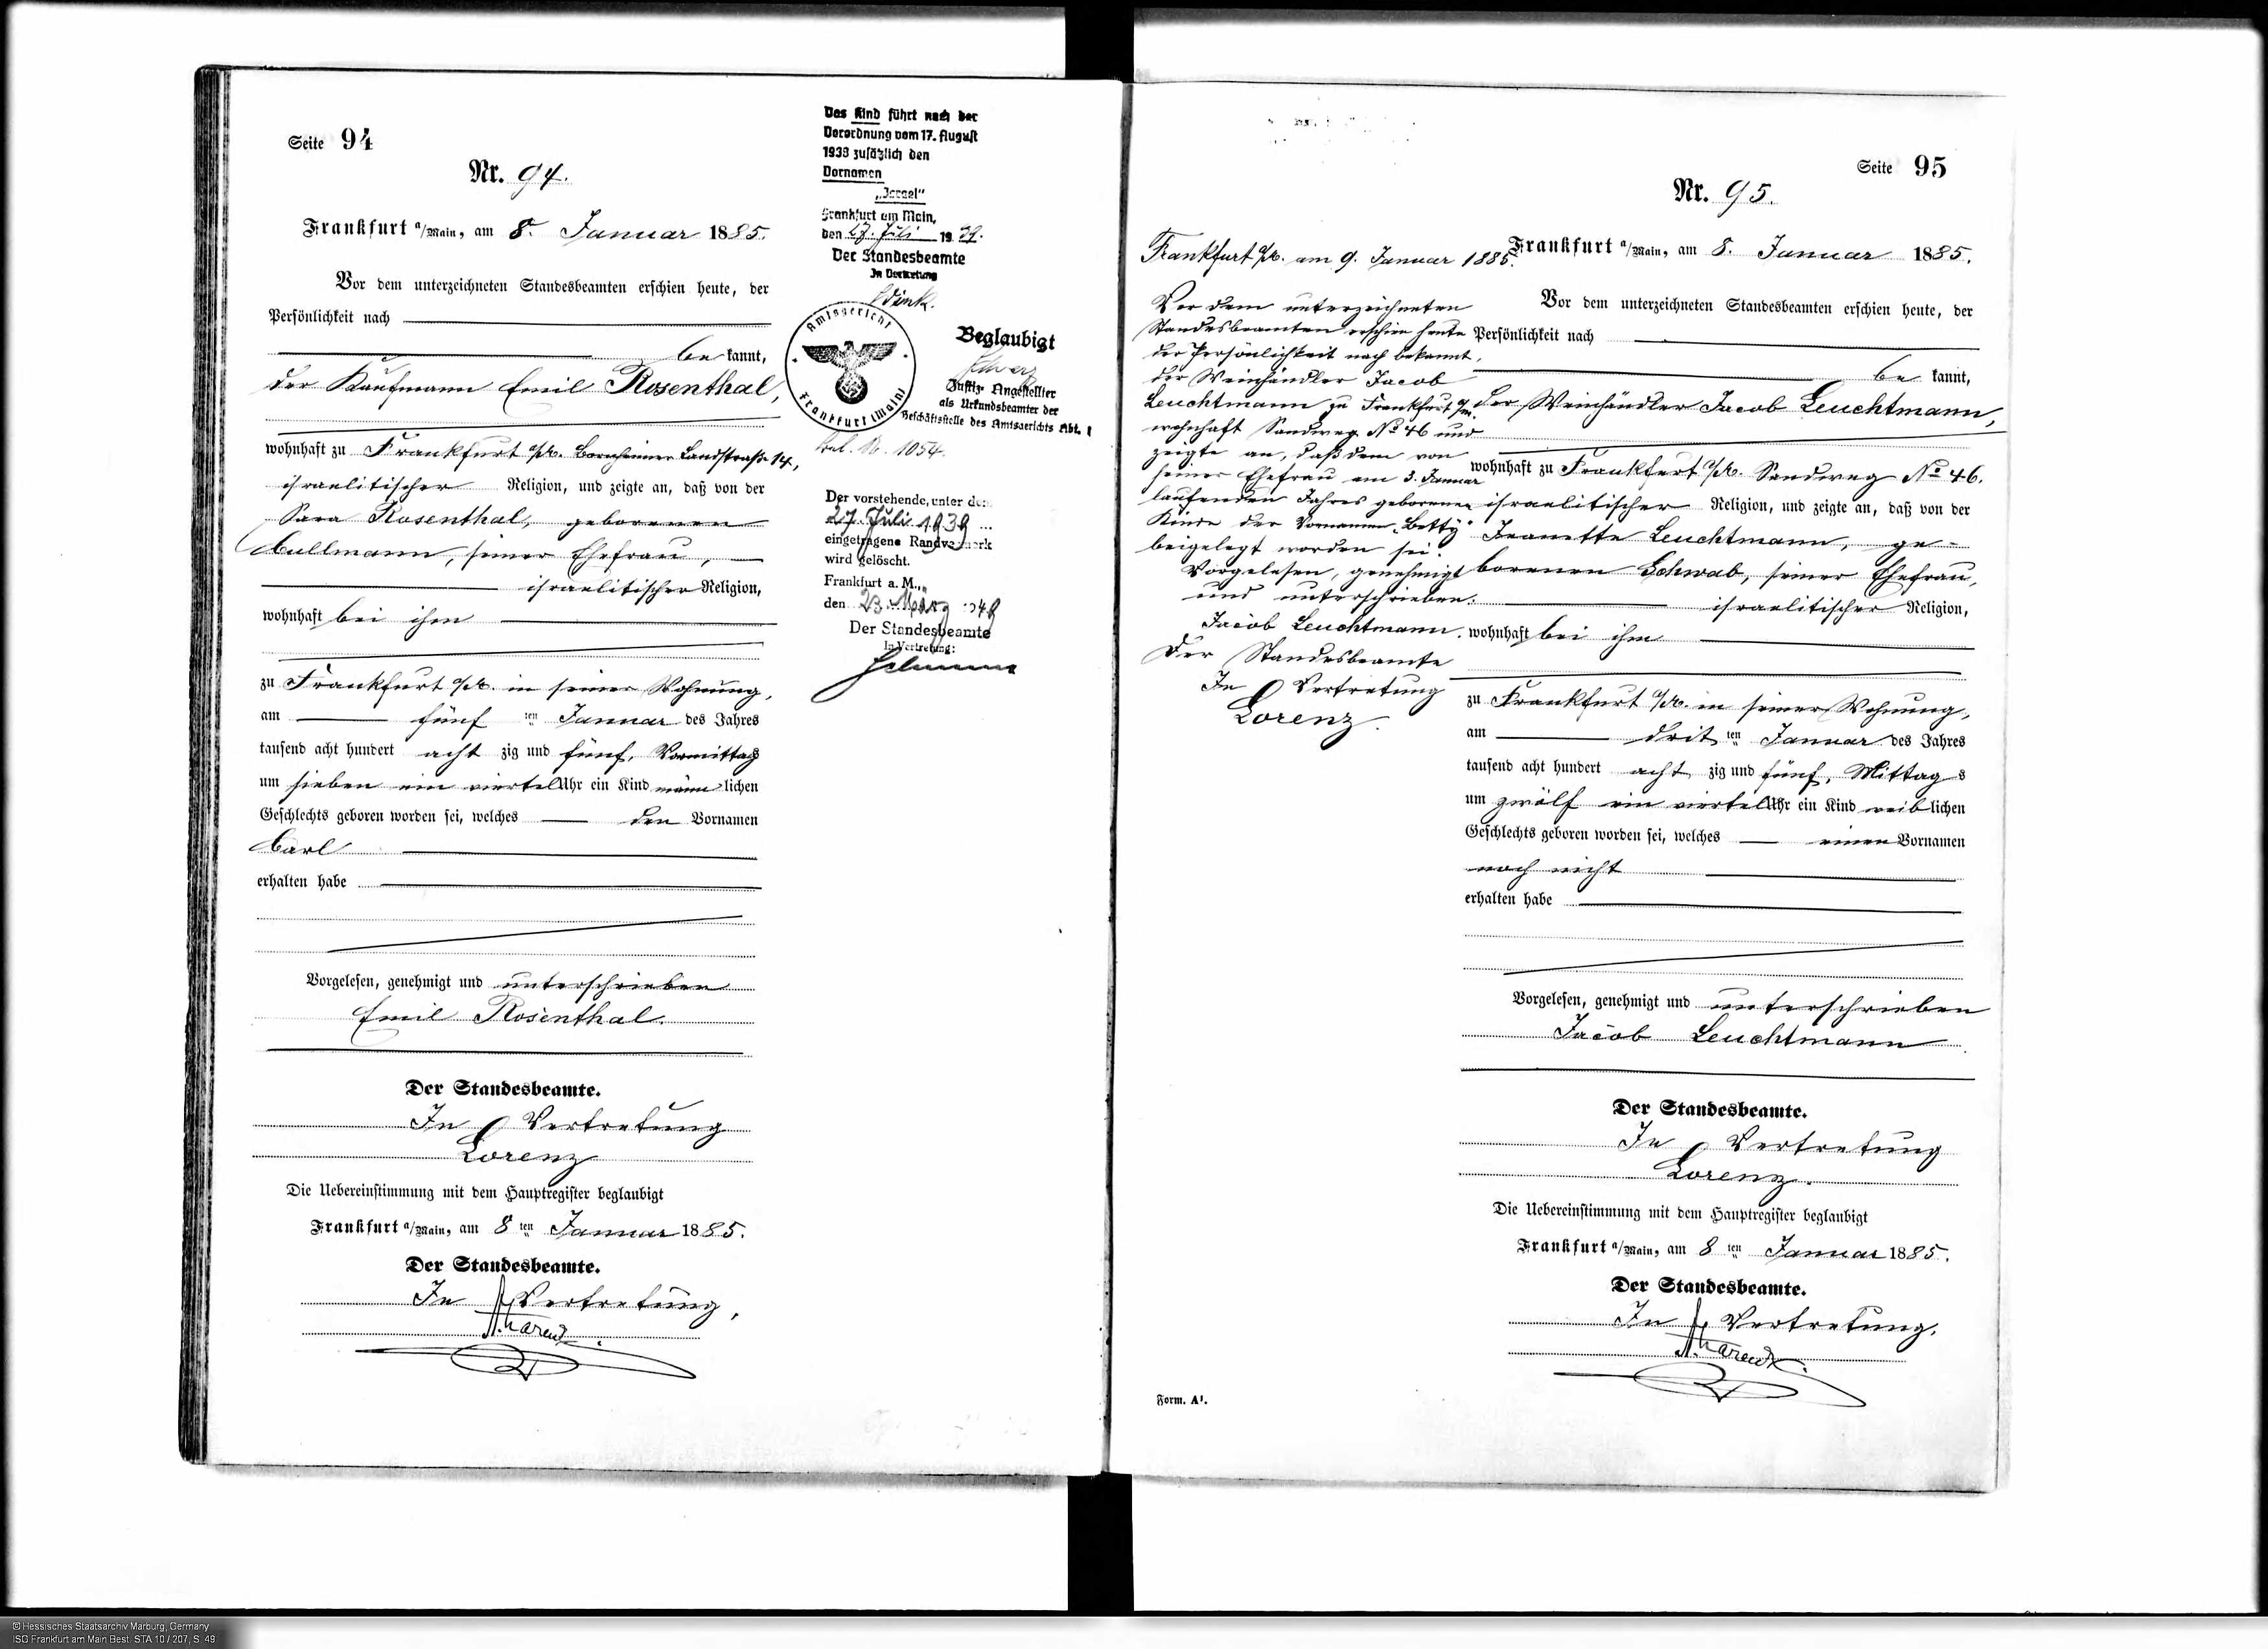 Seite 94
Nr. 94.
Frankfurt a/Main, am 8. Januar 1885.
Vor dem unterzeichneten Standesbeamten erschien heute, der
Persönlichkeit nach
be kannt,
der Kaufmann Emil Rosenthal,
wohnhaft zu Frankfurt a/M. Bornheimer Landstraße 14,
israelitischer Religion, und zeigte an, daß von der
Sara Rosenthal, geborenen
Cullmann, seiner Ehefrau,
israelitischer Religion,
wohnhaft bei ihm
zu Frankfurt a/M. in seiner Wohnung,
am fünf ten Januar des Jahres
tausend acht hundert acht zig und fünf, Vormittags
um sieben ein viertel Uhr ein Kind männ lichen
Geschlechts geboren worden sei, welches den Vornamen
Carl
erhalten habe
Vorgelesen, genehmigt und unterschrieben
Emil Rosenthal.
Der Standesbeamte.
In Vertretung
Lorenz
Die Uebereinstimmung mit dem Hauptregister beglaubigt
Frankfurt a/Main, am 8 ten Januar 1885.
Der Standesbeamte.
In Vertretung,
Das Kind führt nach der
Verordnung vom 17. August
1938 zusätzlich den
Vornamen
„Israel"
Frankfurt am Main,
den 27. Juli 1939.
Der Standesbeamte
In Vertretung
Amtsgericht
Frankfurt (Main)
Beglaubigt
Justiz-Angestellter
als Urkundsbeamter der
Geschäftsstelle des Amtsgerichts Abt. 1
No. 1054.
Der vorstehende, unter dem
27. Juli 1939
eingetragene Randvermerk
wird gelöscht.
Frankfurt a. M.,
den 23. März 1948
Der Standesbeamte
In Vertretung:
Seite 95
Nr. 95.
Frankfurt a/M. am 9. Januar 1885.
Vor dem unterzeichneten
Standesbeamten erschien heute
der Persönlichkeit nach bekannt,
der Weinhändler Jacob
Leuchtmann zu Frankfurt a/M.
wohnhaft Sandweg No 46 und
zeigte an, daß dem von
seiner Ehefrau am 3. Januar
laufenden Jahres geborenen
Kinde der Vornamen „Betty"
beigelegt worden sei.
Vorgelesen, genehmigt
und unterschrieben.
Jacob Leuchtmann.
Der Standesbeamte
In Vertretung
Lorenz.
Frankfurt a/Main, am 8. Januar 1885.
Vor dem unterzeichneten Standesbeamten erschien heute, der
Persönlichkeit nach
be kannt,
der Weinhändler Jacob Leuchtmann,
wohnhaft zu Frankfurt a/M. Sandweg No 46.
israelitischer Religion, und zeigte an, daß von der
Jeanette Leuchtmann, ge-
borenen Schwab, seiner Ehefrau,
israelitischer Religion,
wohnhaft bei ihm
zu Frankfurt a/M. in seiner Wohnung,
am drit ten Januar des Jahres
tausend acht hundert acht zig und fünf, Mittag s
um zwölf ein viertel Uhr ein Kind weib lichen
Geschlechts geboren worden sei, welches einen Vornamen
noch nicht
erhalten habe
Vorgelesen, genehmigt und unterschrieben
Jacob Leuchtmann
Der Standesbeamte.
In Vertretung
Lorenz.
Die Uebereinstimmung mit dem Hauptregister beglaubigt
Frankfurt a/Main, am 8 ten Januar 1885.
Der Standesbeamte.
In Vertretung.
Form. A1.
© Hessisches Staatsarchiv Marburg, Germany
ISG Frankfurt am Main Best. STA 10 / 207, S. 49